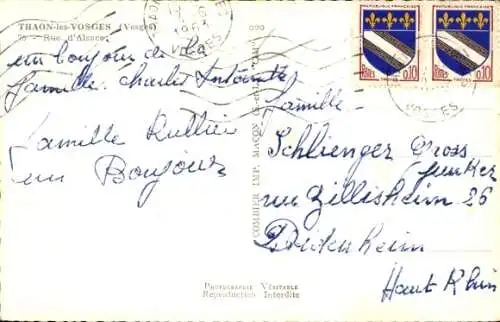 THAON-les-VOSGES (Vosges)
Rue d'Alsace
un bonjour de la
famille. charles Antoinette
famille Rullier
un Bonjour
COMBIER IMP. MACON
REPUBLIQUE FRANÇAISE
REPUBLIQUE FRANÇAISE
Postes 0,10
Postes 0,10
TROYES
TROYES
VOSGES
famille
Schlienger Gross
junker
rue Zillisheim 26
Didenheim
Haut Rhin
PHOTOGRAPHIE VÉRITABLE
Reproduction Interdite